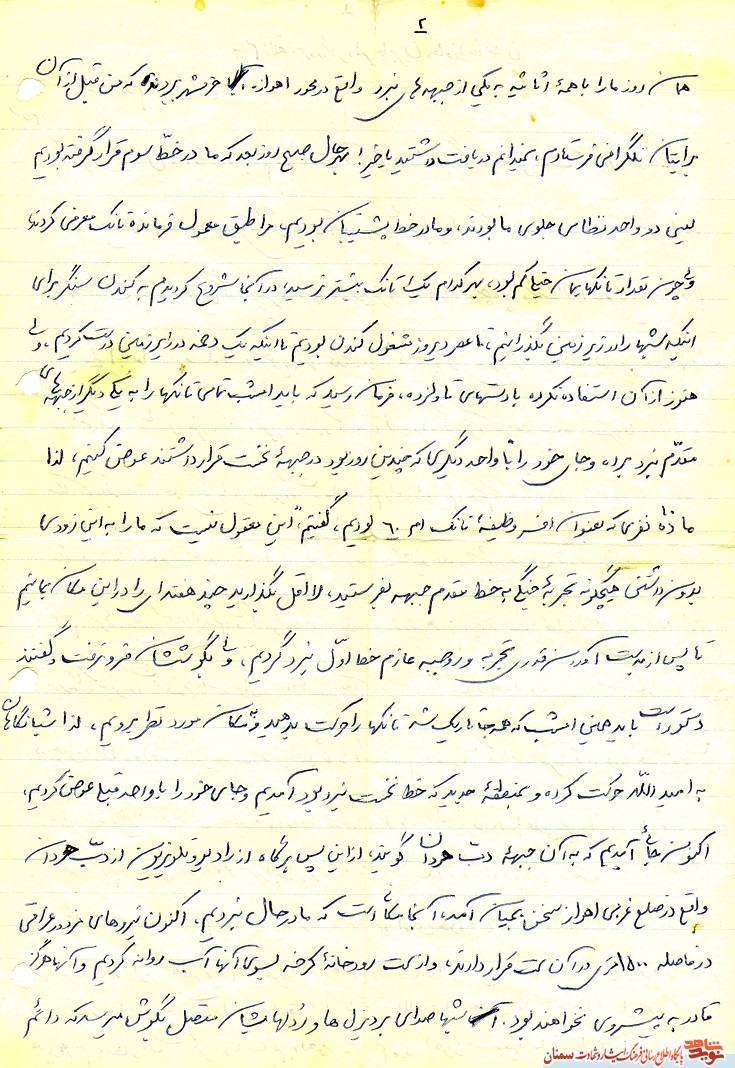 ۲
همان روز ما را با همهٔ اثاثیه به یکی از جبهه‌های نبرد واقع در محور اهواز خرمشهر بردند که من قبل از آن
برایتان تلگرافی فرستادم، نمیدانم دریافت داشتید یا خیر! بهرحال صبح روز بعد که ما در خطّ سوم قرار گرفته بودیم
یعنی دو واحد نظامی جلوی ما بودند، و ما در خط پشتیبان بودیم، مرا طبق معمول فرماندهٔ تانک معرفی کردند
ولی چون تعداد تانکهایمان خیلی کم بود، بهر کدام یک تانک بیشتر نرسید، در آنجا شروع کردیم به کندن سنگر برای
اینکه شبها را در زیرزمینی بگذرانیم، تا عصر دیروز مشغول کندن بودیم تا اینکه یک دخمه در زیرزمین درست کردیم، ولی
هنوز از آن استفاده نکرده با دستهای تاول‌زده، فرمان رسید که باید امشب تمامی تانکها را به یکی دیگر از جبهه‌های
مقدّم نبرد برده و جای خود را با واحد دیگری که چندین روز بود در جبههٔ نخست قرار داشتند عوض کنیم، لذا
ما نفری که بعنوان افسر وظیفهٔ تانک ام ۶۰ بودیم، گفتیم، این معقول نیست که ما را به این زودی
بدون داشتن هیچگونه تجربهٔ جنگی به خط مقدم جبهه بفرستید، لااقل بگذارید چند هفته‌ای را در این مکان بمانیم
تا پس از بدست آوردن قدری تجربه و روحیه عازم خط اوّل نبرد گردیم، ولی بگوششان فرو نرفت و گفتند
دستور است باید همین امشب که همه‌جا تاریک شد تانکها را حرکت بدهید و به مکان مورد نظر ببریم، لذا شبانگاهان
به امید اللّه حرکت کرده و بمنطقهٔ جدید که خط نخست نبرد بود آمدیم و جای خود را با واحد قبلی عوض کردیم،
اکنون جائی آمدیم که به آن جبههٔ دبّ حردان گویند، از این پس هرگاه از رادیو و تلویزیون از دبّ حردان
واقع در ضلع غربی اهواز سخن بمیان آمد، آنجا مکانی است که ما در حال نبردیم، اکنون نیروهای مزدور عراقی
در فاصله ۱۵۰۰ متری در آن سمت قرار دارند، و از سمت رودخانهٔ کرخه بسوی آنها آب روانه کردیم و آنها هرگز
قادر به پیشروی نخواهند بود. شبها صدای بردیزل‌ها و رُلهایشان متصل بگوش میرسد که دائم
نوید شاهد
پایگاه اطلاع رسانی فرهنگ ایثار و شهادت سمنان